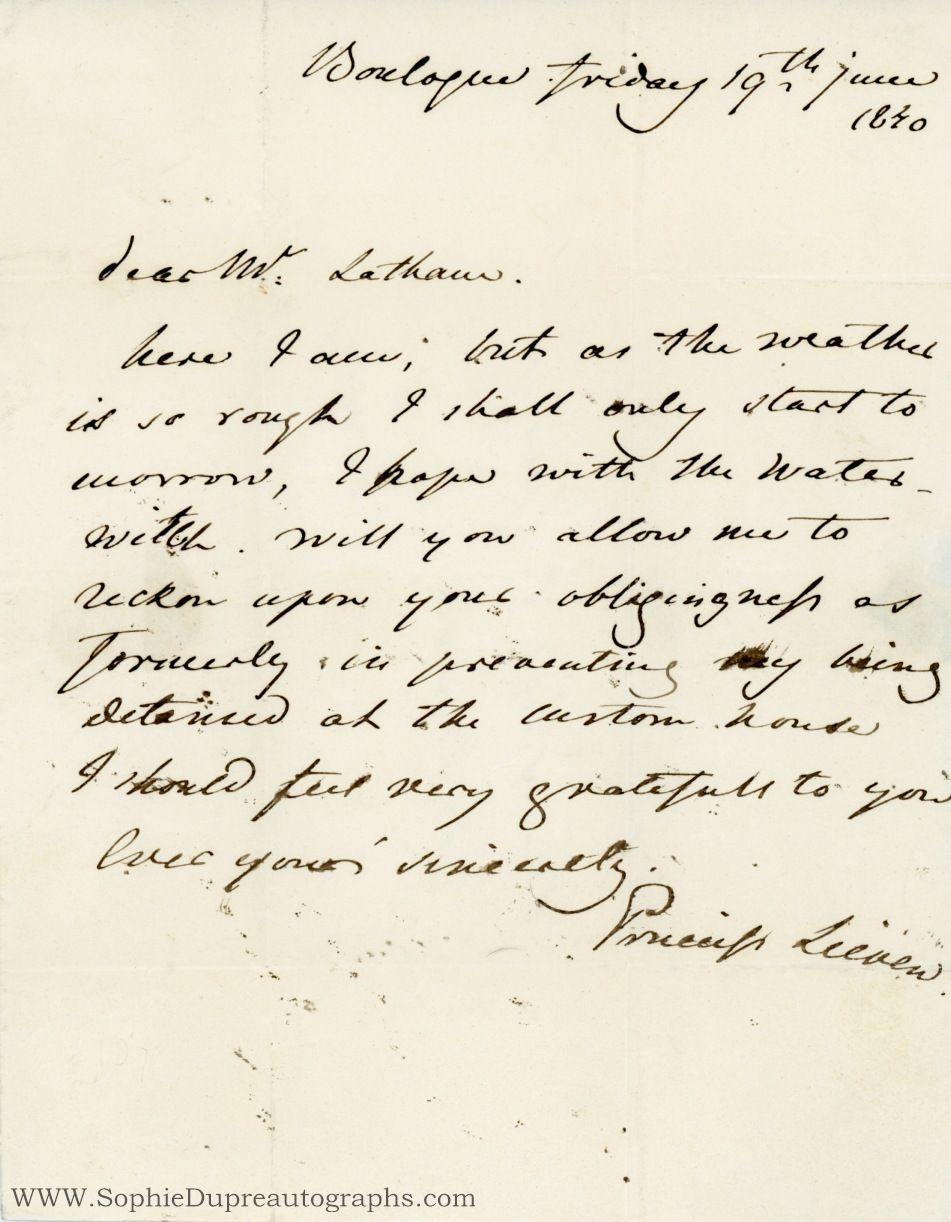 Boulogne friday 19th june
1840
dear Mr. Latham.
here I am; but as the weather
is so rough I shall only start to
morrow, I hope with the Water-
witch. will you allow me to
reckon upon your obligingness as
formerly in preventing my being
detained at the custom house
I should feel very gratefull to you
Ever yours sincerely.
Princess Lieven.
WWW.SophieDupreautographs.com